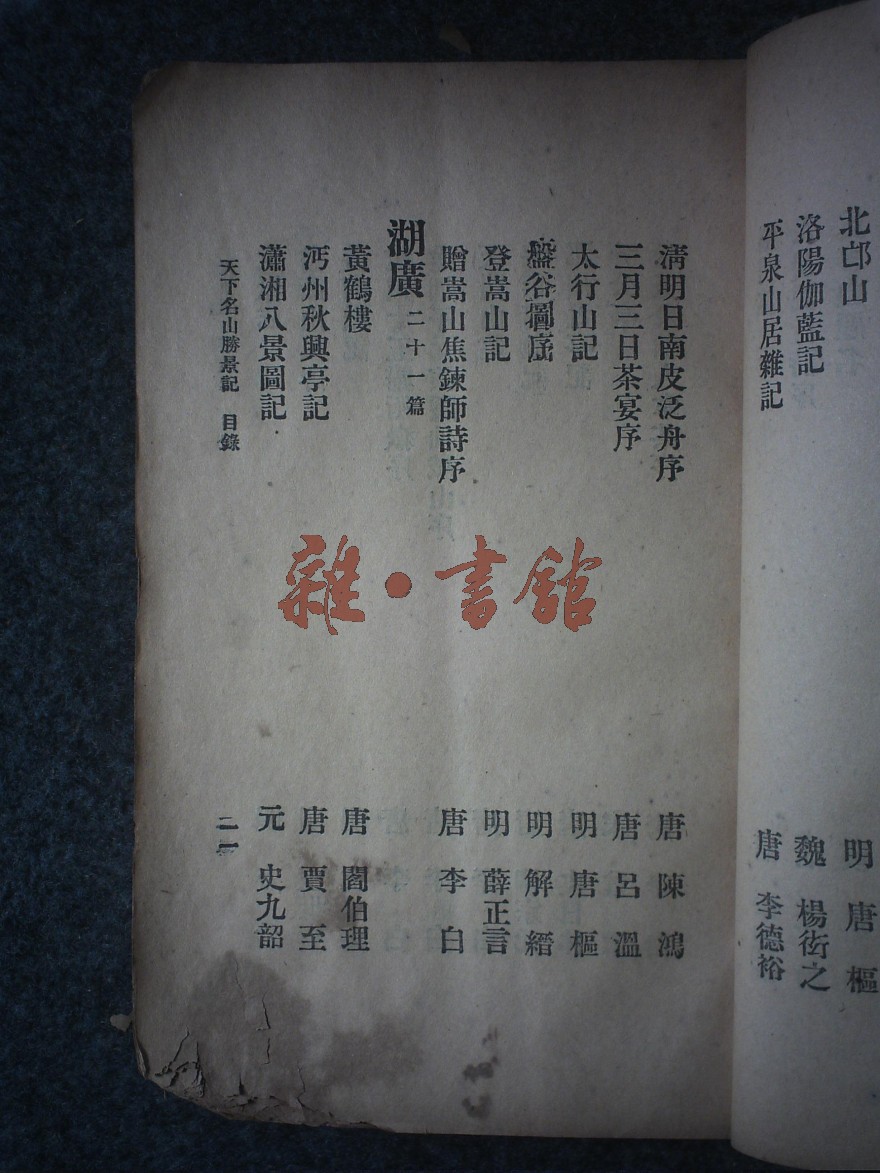 北邙山　明　唐樞
洛陽伽藍記　魏　楊衒之
平泉山居雜記　唐　李德裕
淸明日南皮泛舟序　唐　陳鴻
三月三日茶宴序　唐　呂溫
太行山記　明　唐樞
盤谷圖序　明　解縉
登嵩山記　明　薛正言
贈嵩山焦鍊師詩序　唐　李白
湖廣　二十一篇
黃鶴樓　唐　閻伯理
沔州秋興亭記　唐　賈至
瀟湘八景圖記　元　史九韶
天下名山勝景記　目錄　二一
雜·書館